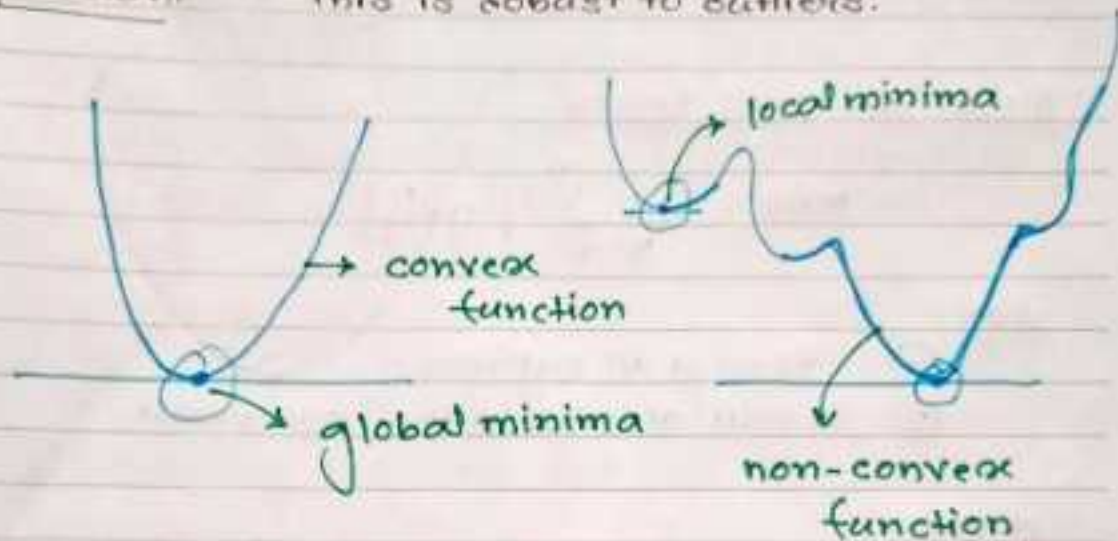 This is robust to outliers.
local minima
convex
function
global minima
non-convex
function